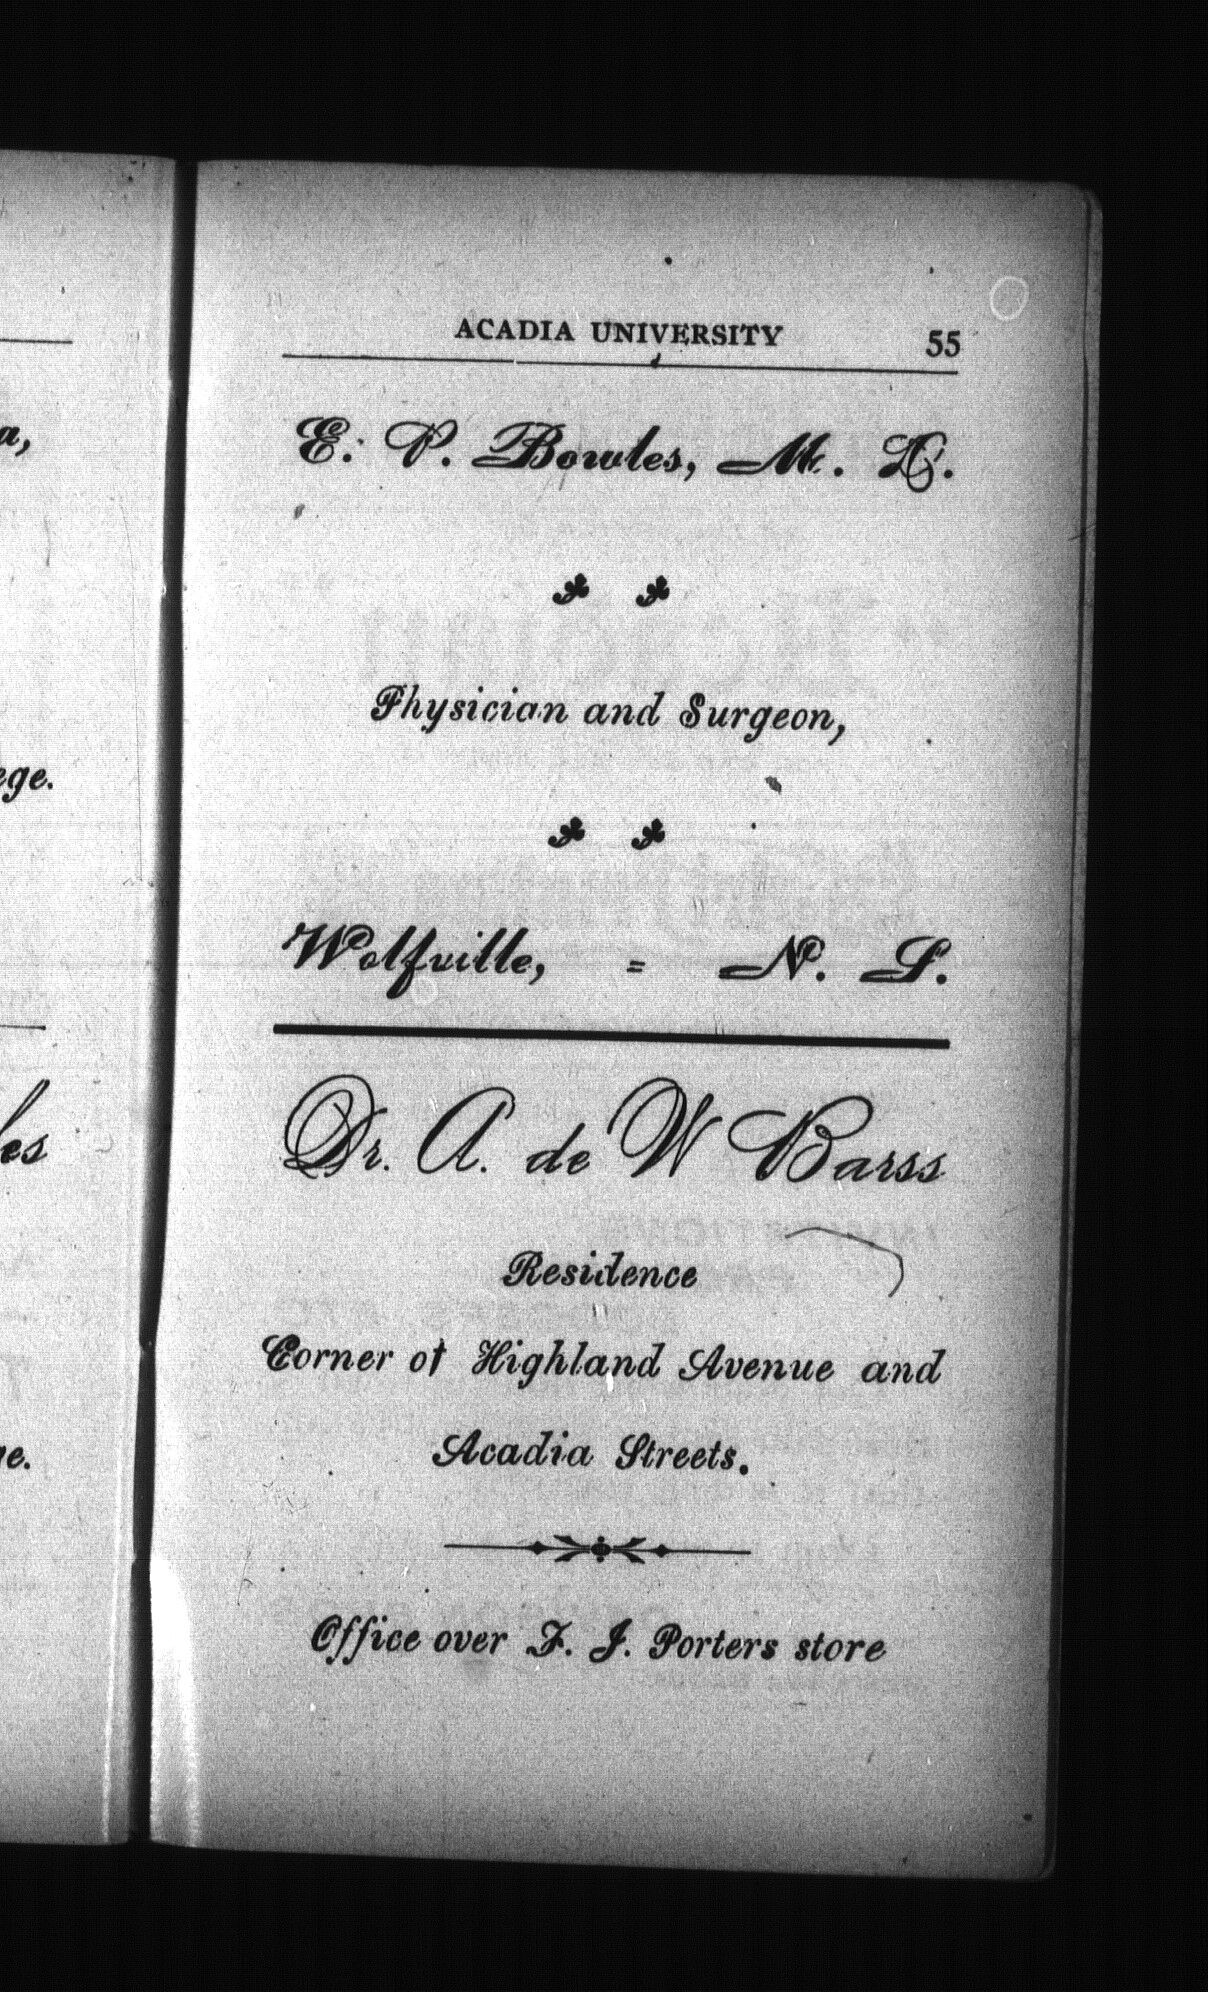 a,
ege.
les
ge.
ACADIA UNIVERSITY 55
E. P. Bowles, M. D.
Physician and Surgeon,
Wolfville, = N. S.
Dr. A. de W Barss
Residence
Corner of Highland Avenue and
Acadia Streets.
Office over F. J. Porters store